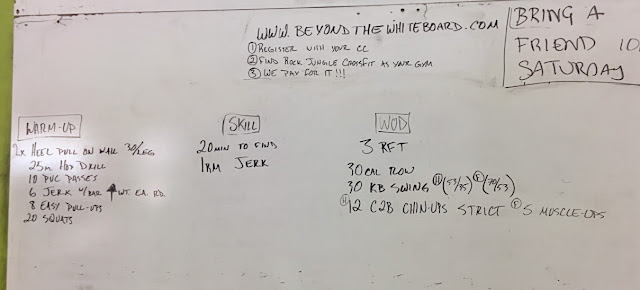 WWW.BEYONDTHEWHITEBOARD.COM
① REGISTER WITH YOUR CC
② FIND ROCK JUNGLE CROSSFIT AS YOUR GYM
③ WE PAY FOR IT!!!
BRING A
FRIEND 10
SATURDAY
WARM-UP
2x HEEL PULL ON WALL 30/LEG
25m HOP DRILL
10 PVC PASSES
6 JERK W/BAR ↑ WT. EA. RD.
8 EASY PULL-UPS
20 SQUATS
SKILL
20 MIN TO FIND
1RM JERK
WOD
3 RFT
30 CAL ROW
30 KB SWING (53/35) (70/53)
12 C2B CHIN-UPS STRICT 5 MUSCLE-UPS